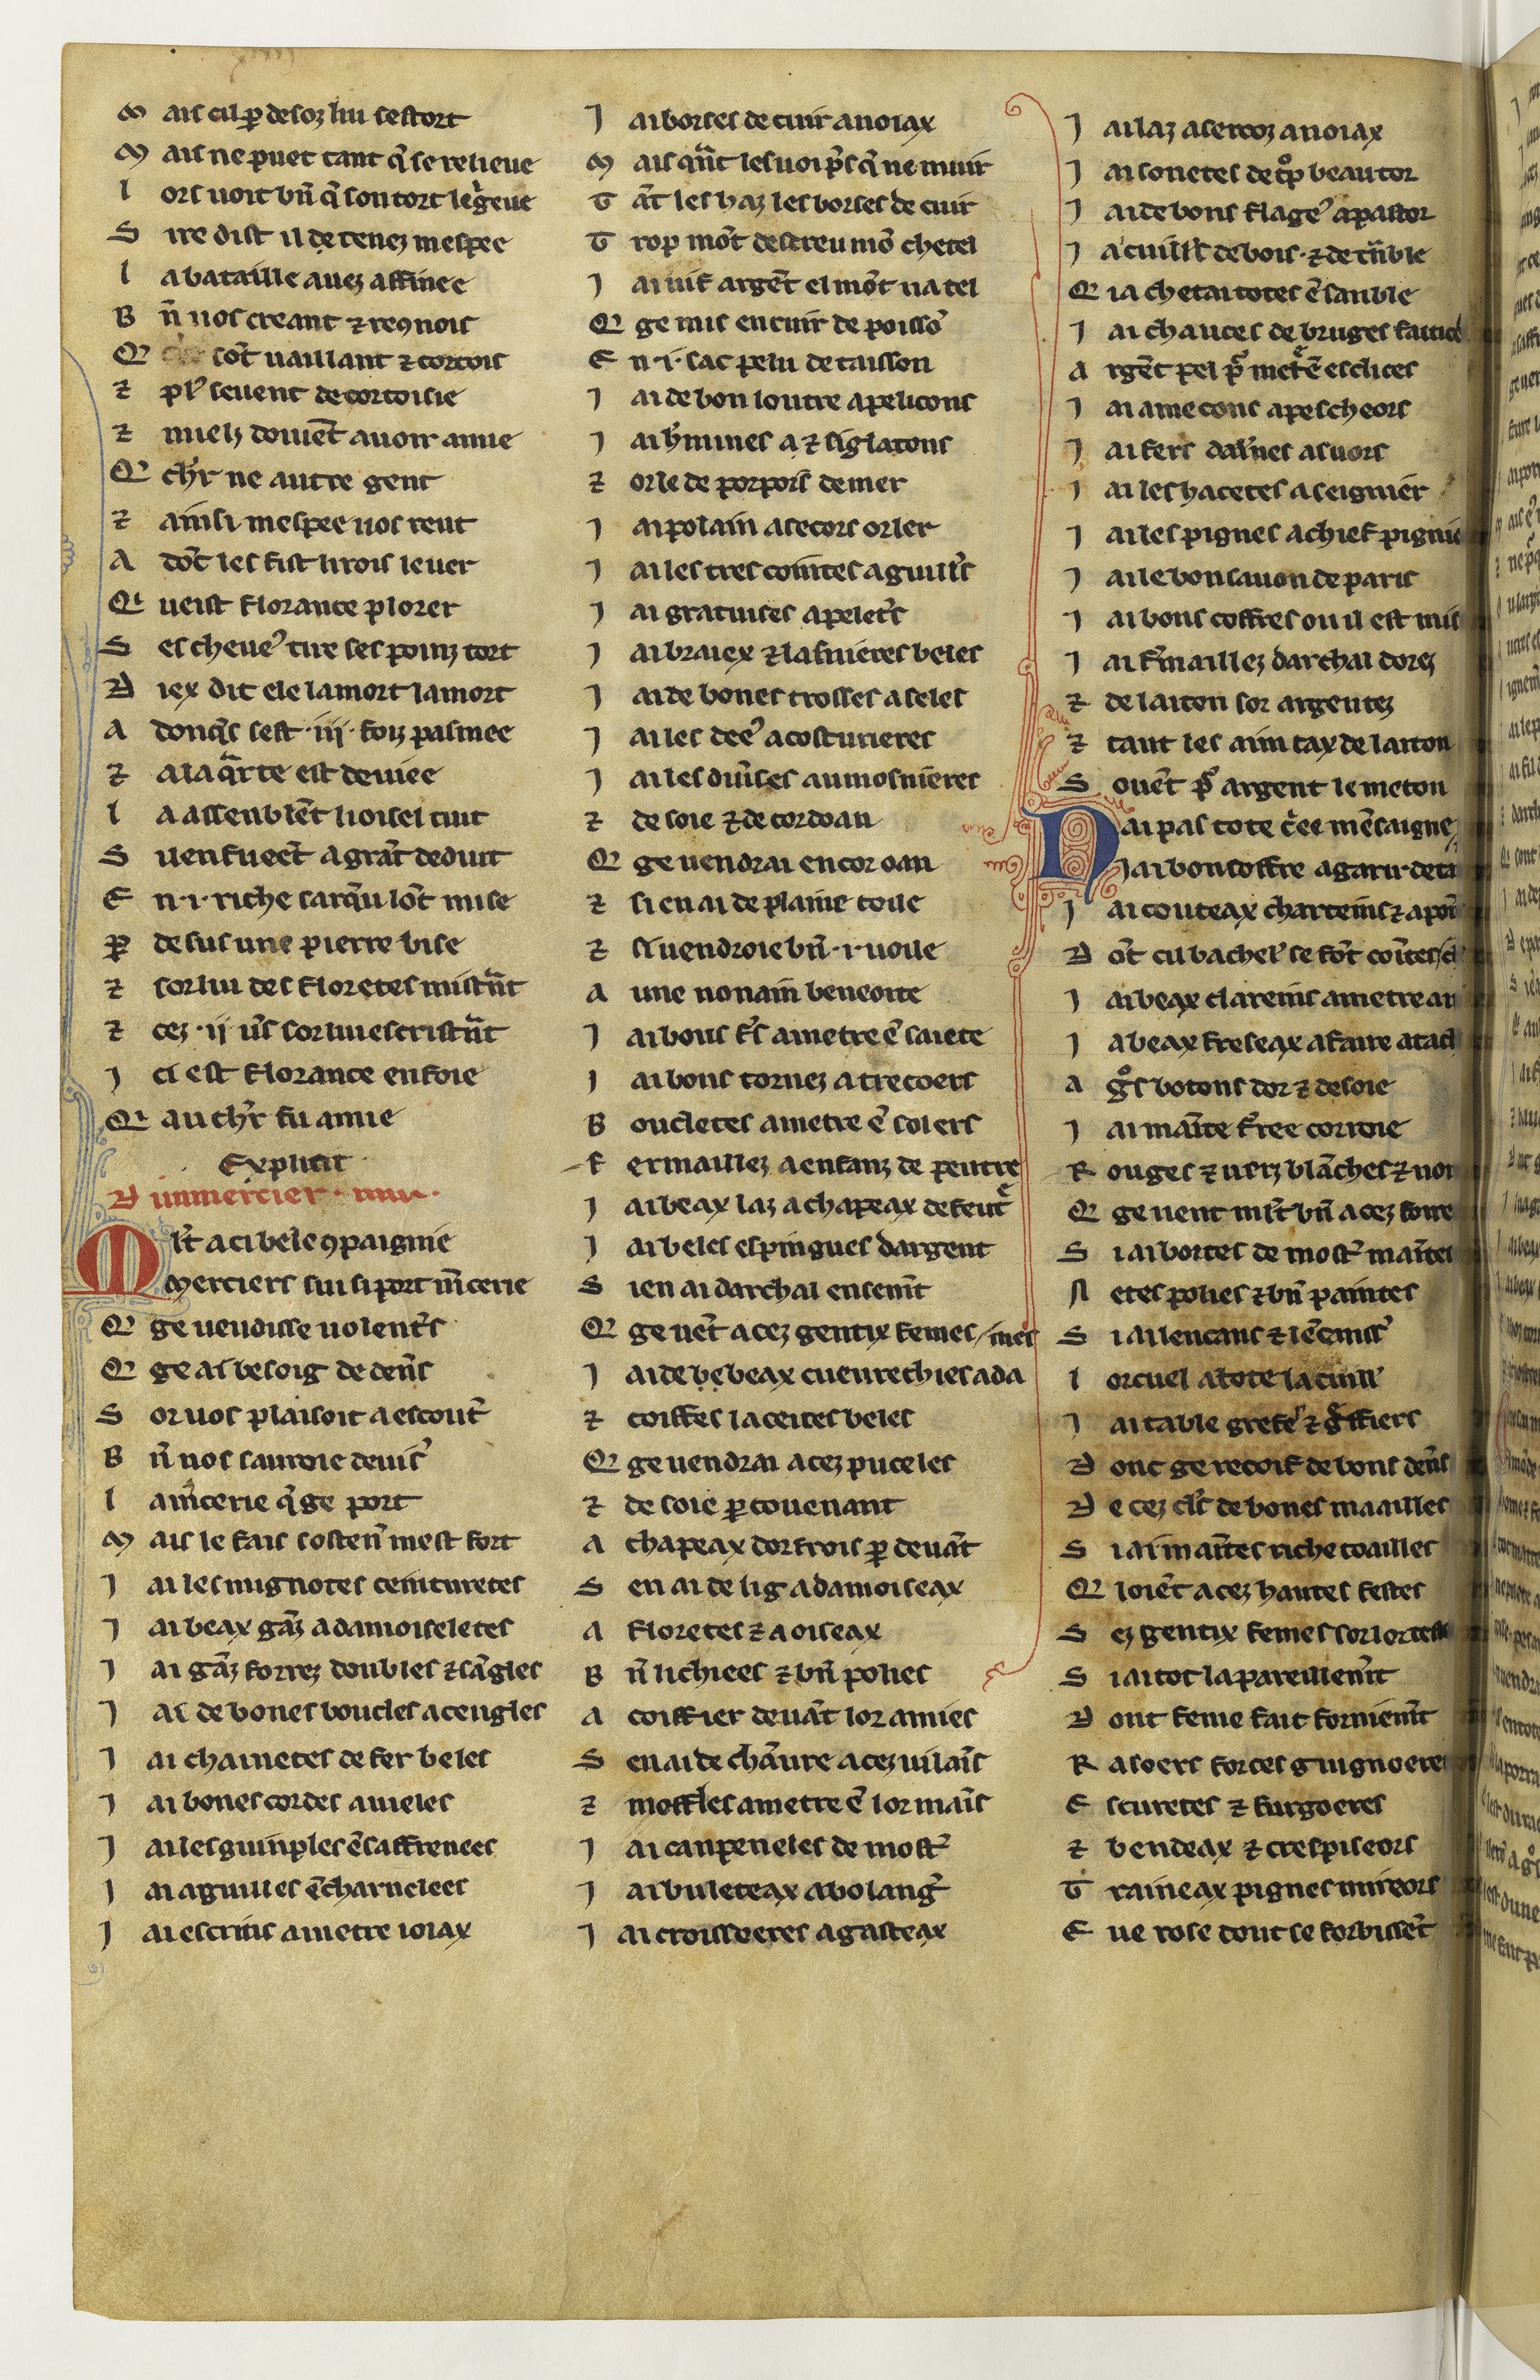 M ais cil ꝑ desoz lui sestort
M ais ne puet tant q̃ se relieue
L ors uoit bñ q̃ son tort le g̾eue
S ire dist il de tenez mespee
L a bataille auez affinee
B ñ uos creant ⁊ reꝯnois
Q sõt uaillant ⁊ cortois
⁊ pl᾽ seuent de cortoisie
⁊ mielz doiuẽt auoir amie
Q ch᾽r ne autre gent
⁊ ainsi mespee uos rent
A dõc les fist li rois leuer
Qi ueist florance plorer
S es cheue᾽ tire ses poinz tort
D iex dit ele la mort la mort
A donq̃s sest ·iij· foiz pasmee
⁊ a la q̃rte est deuiee
L a assenblẽt li oisel tuit
S uenfueẽt a grãt deduit
E n ·i· riche sarq̃u lõt mise
ꝑ desus une pierre bise
⁊ sor lui des floretes mistr̃nt
⁊ cez ·ij u᾽s sor lui escristr̃nt
I ci est florance enfoie
Qi au ch᾽r fu amie
Explicit
D un mercier
M lt̃ a ci bele ꝯpaignie
Merciers sui si port m̃cerie
Q ge uendisse uolent᾽s
Q ge ai besoig de den᾽s
S or uos plaisoit a escout᾽
B ñ uos sauroie deuis᾽
L a m̾cerie q̃ ge port
M ais le fais sosten᾽ mest fort
I ai les mignotes ceinturetes
I ai beax gãz a damoiseletes
I ai gãz forrez doubles ⁊ sãgles
I ai de bones boucles a cengles
I ai chainetes de fer beles
I ai bones cordes a uieles
I ai les guinples ẽsaffrenees
I ai aguilles ẽcharnelees
I ai escrins a metre ioiax
I ai borses de cuir a noiax
M ais qñt les uoi p̃s q̃ ne muir
T ãt les haz les borses de cuir
T rop mõt destreu mõ chetel
I ai uif argẽt el mõt na tel
Q ge mis en cuir de poissõ
E n ·i· sac pelu de taisson
I ai de bon loutre a peliçons
I ai h᾽mines a ⁊ siglatons
⁊ orle de porpois de mer
I ai polain a secors orler
I ai les tres cointes aguill᾽s
I ai gratuises a pelet᾽s
I ai braiex ⁊ lasnieres beles
I ai de bones trosses a seles
I ai les dee᾽ a costurieres
I ai les diũses aumosnieres
⁊ de soie ⁊ de cordoan
Q ge uendrai encor oan
⁊ si en ai de plaine toile
⁊ si uendroie bñ ·i· uoile
A une nonain beneoite
I ai bons f᾽s a metre ẽ saiete
I ai bons tornez a treçoers
B oucletes a metre ẽ solers
F ermaillez a enfanz de peutre
I ai beax laz a chapeax de feut᾽
I ai beles espingues dargent
S i en ai darchal ensem̃t
Q ge uẽt a cez gentix femes
I ai de be beax cueurechies a da / mes
⁊ coiffes laceites beles
Q ge uendrai a cez puceles
⁊ de soie ꝑ couenant
A chapeax dorfrois ꝑ deuãt
S en ai de lig a damoiseax
A floretes ⁊ a oiseax
B ñ lichiees ⁊ bñ polies
A coiffier deuãt lor amies
S en ai de chãure a cez uilaĩs
⁊ moffles a metre ẽ lor maĩs
I ai canpeneles de most᾽
I ai buleteax a bolang᾽
I ai croissoeres a gasteax
I ai laz a sercoz a noiax
I ai sonetes de t͛p beau tor
I ai de bons flage᾽ a pastor
I a cuill᾽s de bois · ⁊ de tr̃nble
Q i achetai totes ẽsanble
I ai chauces de bruges faitic
A rgẽt pel p̾ metr̾ ẽ esclices
I ai ameçons a pescheors
I ai fers dal᾽nes a suors
I ai les hacetes a seignier
I ai les pignes a chief pignie
I ai le bon sauon de paris
I ai bons coffres ou il est mis
I ai f᾽maillez darchal dorez
⁊ de laiton sor argentez
⁊ tant les aim cax de laiton
S ouẽt p̾ argent le meton
N ai pas tote c᾽ee mẽsaigne
I ai bon coffre a garir de ti
I ai couteax charteins ⁊ a poĩ
D õt cil bachel᾽ se fõt coĩtes
I ai beax clareins a metre au
I a beax freseax a faire atach
A g͛s botons dor ⁊ de soie
I ai mainte f᾽ree corroie
R ouges ⁊ uerz blãches ⁊ noi
Q ge uent mlt̃ bñ a cez foire
S i ai boites de most᾽ maĩtes
N etes polies ⁊ bñ paintes
S i ai lencans ⁊ lẽcenss᾽
L orcuel a tote la cuill᾽
I ai table grefe᾽ ⁊ g᾽ffiers
D onc ge reçoif de bons den᾽s
D e cez cl᾽s de bones maailles
S i ai maĩtes riche toailles
Q loiẽt a cez hautes festes
S ez gentix femes sor lor testes
S i ai tot lapareillem̃t
D ont feme fait forniem̃t
R asoers forces guignoeres
E scuretes ⁊ furgoeres
⁊ bendeax ⁊ crespiseors
T raineax pignes mireors
E ue rose dont se forbissẽt